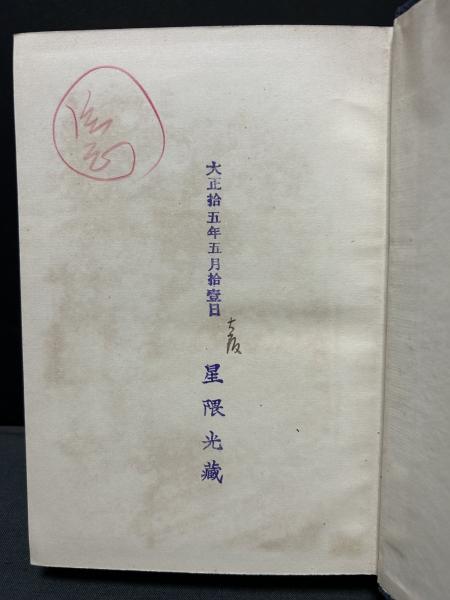 大正拾五年五月拾壹日
大阪
星隈光藏